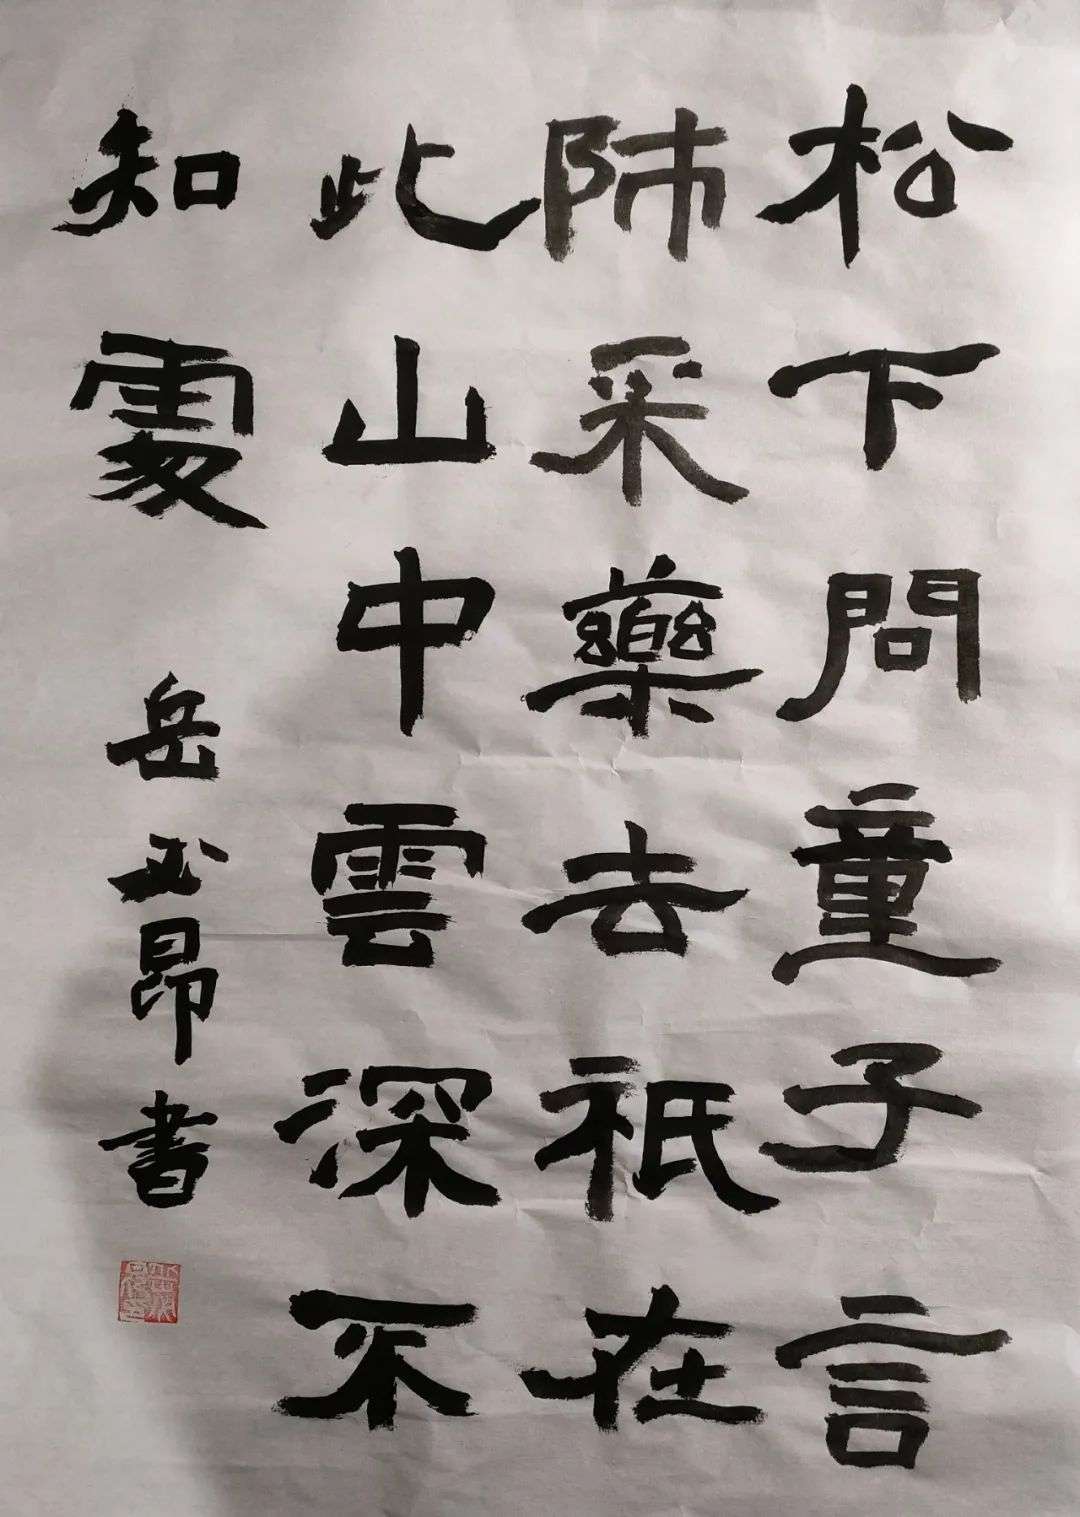 松下問童子言
師采藥去祇在
此山中雲深不
知處
岳武昂書